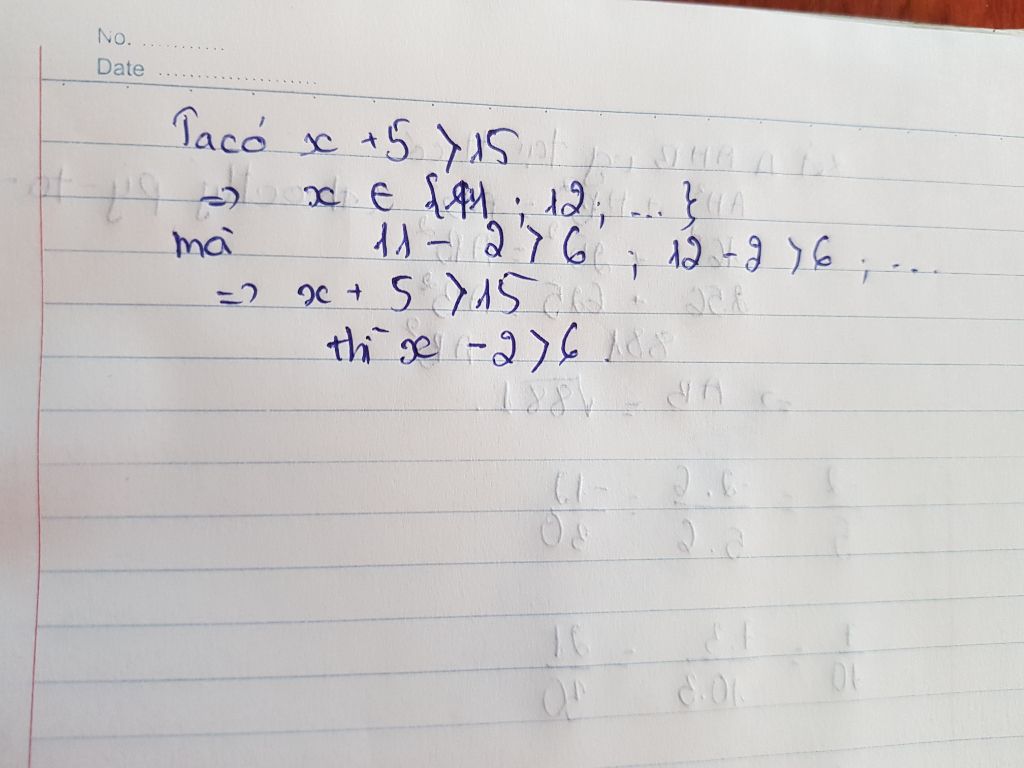 No. ............
Date ......................
Ta có x + 5 > 15
=> x ∈ {11 ; 12 ; ... }
mà 11 - 2 > 6 ; 12 - 2 > 6 ; ...
=> x + 5 > 15
thì x - 2 > 6 .